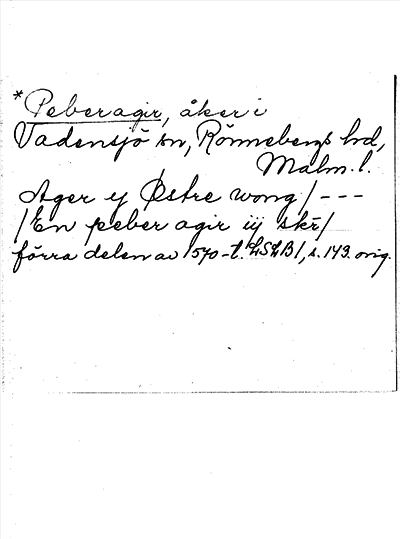 *Peberagir, åker i
Vadensjö sn, Rönnebergs hd,
Malm. l.
Ager ej Østre wong / ---
/ En peber agir iij skr̄ /
förra delen av 1570-t. LSLB1, s. 143 orig.